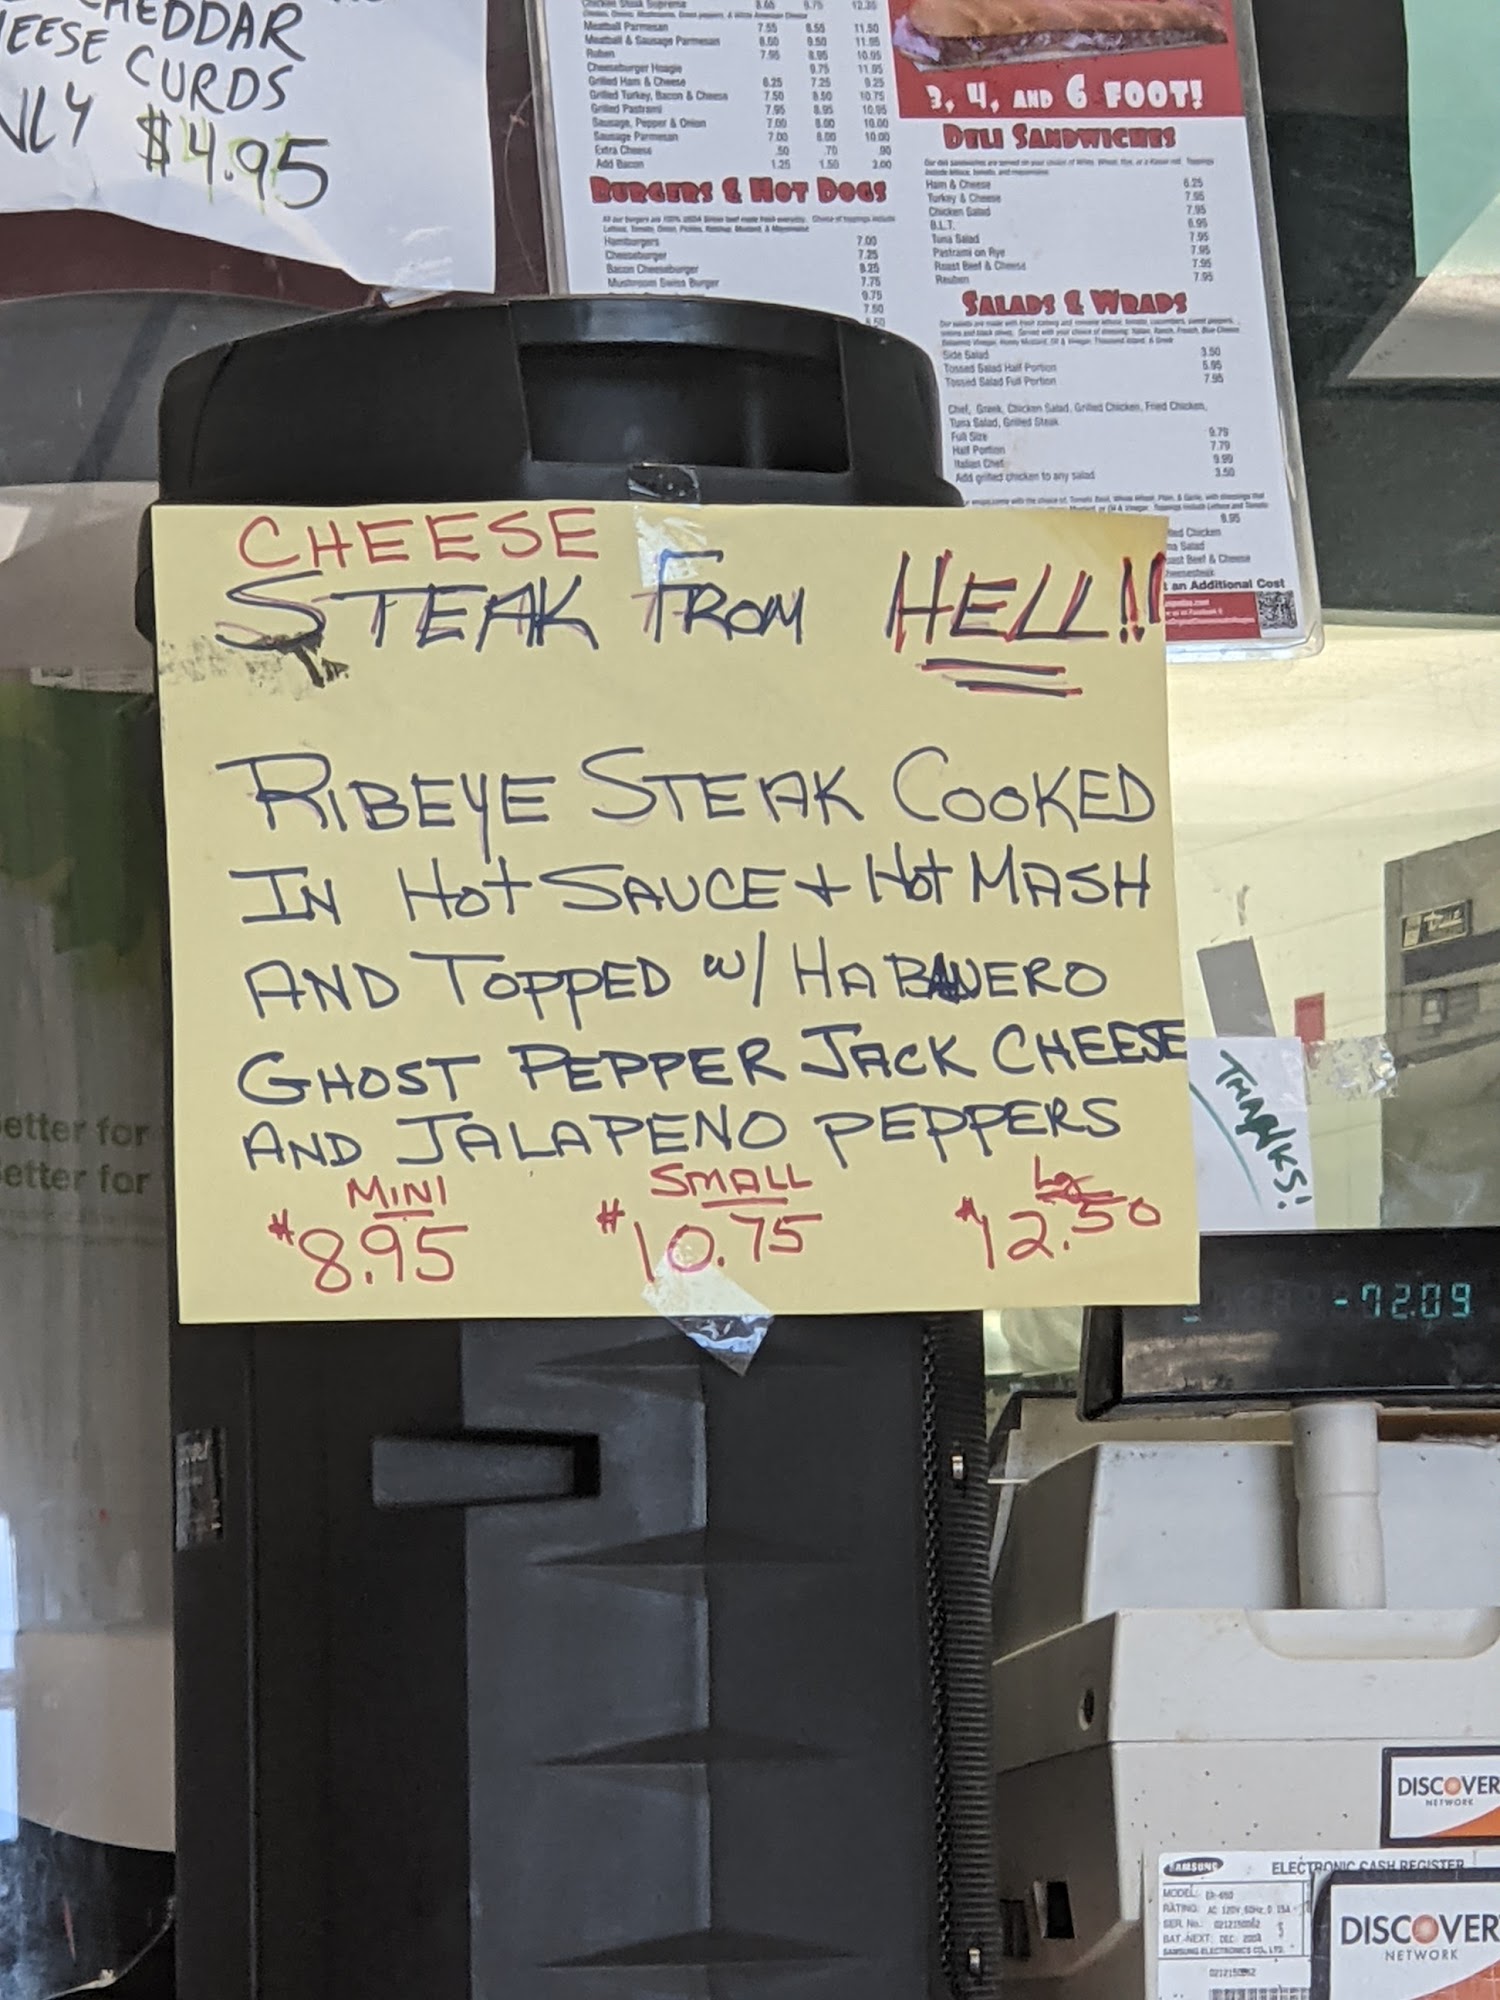 CHEDDAR
CHEESE CURDS
$4.95
Meatball Parmesan 7.55 8.55 11.50
Meatball & Sausage Parmesan 8.50 9.50 11.95
Cheeseburger Hoagie 9.75 11.95
Grilled Ham & Cheese 6.25 7.25 9.25
Grilled Turkey, Bacon & Cheese 7.50 8.50 10.75
Grilled Pastrami 7.95 8.95 10.95
Sausage, Pepper & Onion 7.00 8.00 10.00
Sausage Parmesan 7.00 8.00 10.00
Extra Cheese .50 .70 .90
Add Bacon 1.25 1.50 2.00
BURGERS & HOT DOGS
Hamburgers 7.00
Cheeseburger 7.25
Bacon Cheeseburger 8.25
Mushroom Swiss Burger 7.75
9.75
7.50
3, 4, AND 6 FOOT!
DELI SANDWICHES
Ham & Cheese 6.25
Turkey & Cheese 7.95
Chicken Salad 7.95
B.L.T. 6.95
Tuna Salad 7.95
Pastrami on Rye 7.95
Roast Beef & Cheese 7.95
Reuben 7.95
SALADS & WRAPS
Side Salad 3.50
Tossed Salad Half Portion 5.95
Tossed Salad Full Portion 7.95
Chef, Greek, Chicken Salad, Grilled Chicken, Fried Chicken,
Tuna Salad, Grilled Steak
Full Size 9.79
Half Portion 7.79
Italian Chef 9.99
Add grilled chicken to any salad 3.50
Chicken
Salad
Beef & Cheese
an Additional Cost
CHEESE
STEAK FROM HELL!!
RIBEYE STEAK COOKED
IN HOT SAUCE + HOT MASH
AND TOPPED W/ HABANERO
GHOST PEPPER JACK CHEESE
AND JALAPENO PEPPERS
MINI SMALL LG
$8.95 $10.75 $12.50
THANKS!
etter for
etter for
-72.09
DISCOVER
NETWORK
SAMSUNG ELECTRONIC CASH REGISTER
MODEL: ER-650
RATING: AC 120V, 60Hz, 0.15A
SER. No.:
SAMSUNG ELECTRONICS CO., LTD.
DISCOVER
NETWORK